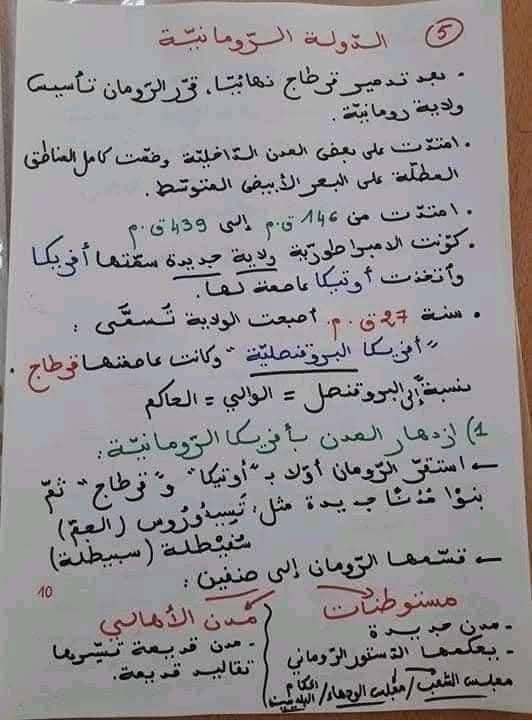 5
الدّولة الرّومانيّة
• بعد تدمير قرطاج نهائيّا، قرّر الرّومان تأسيس
ولاية رومانيّة.
• امتدّت على بعض المدن الدّاخليّة وضمّت كامل المناطق
المطلّة على البحر الأبيض المتوسّط.
• امتدّت من 146 ق.م إلى 439 ق.م
• كوّنت الامبراطوريّة ولاية جديدة سمّتها أفريكا
وأتخذت أوتيكا عاصمة لها.
• سنة 27 ق.م. أصبحت الولاية تُسمَّى :
"أفريكا البروقنصليّة" وكانت عاصمتها قرطاج.
نسبة إلى البروقنصل = الوالي = الحاكم
1) ازدهار المدن بأفريكا الرّومانيّة:
← استقرّ الرّومان أوّلا بـ "أوتيكا" و"قرطاج" ثمّ
بنوا مُدنًا جديدة مثل: تَيسدُرُوس (الجمّ)
سُفيْطلة (سبيطلة)
← قسّمها الرّومان إلى صنفين :
10
مستوطنات
مُدن الأهالي
- مدن جديدة
- يحكمها الدّستور الرّوماني
مجلس الشّعب / مجلس الوجهاء / الحكّام
- مدن قديمة تسيّرها
تقاليد قديمة.